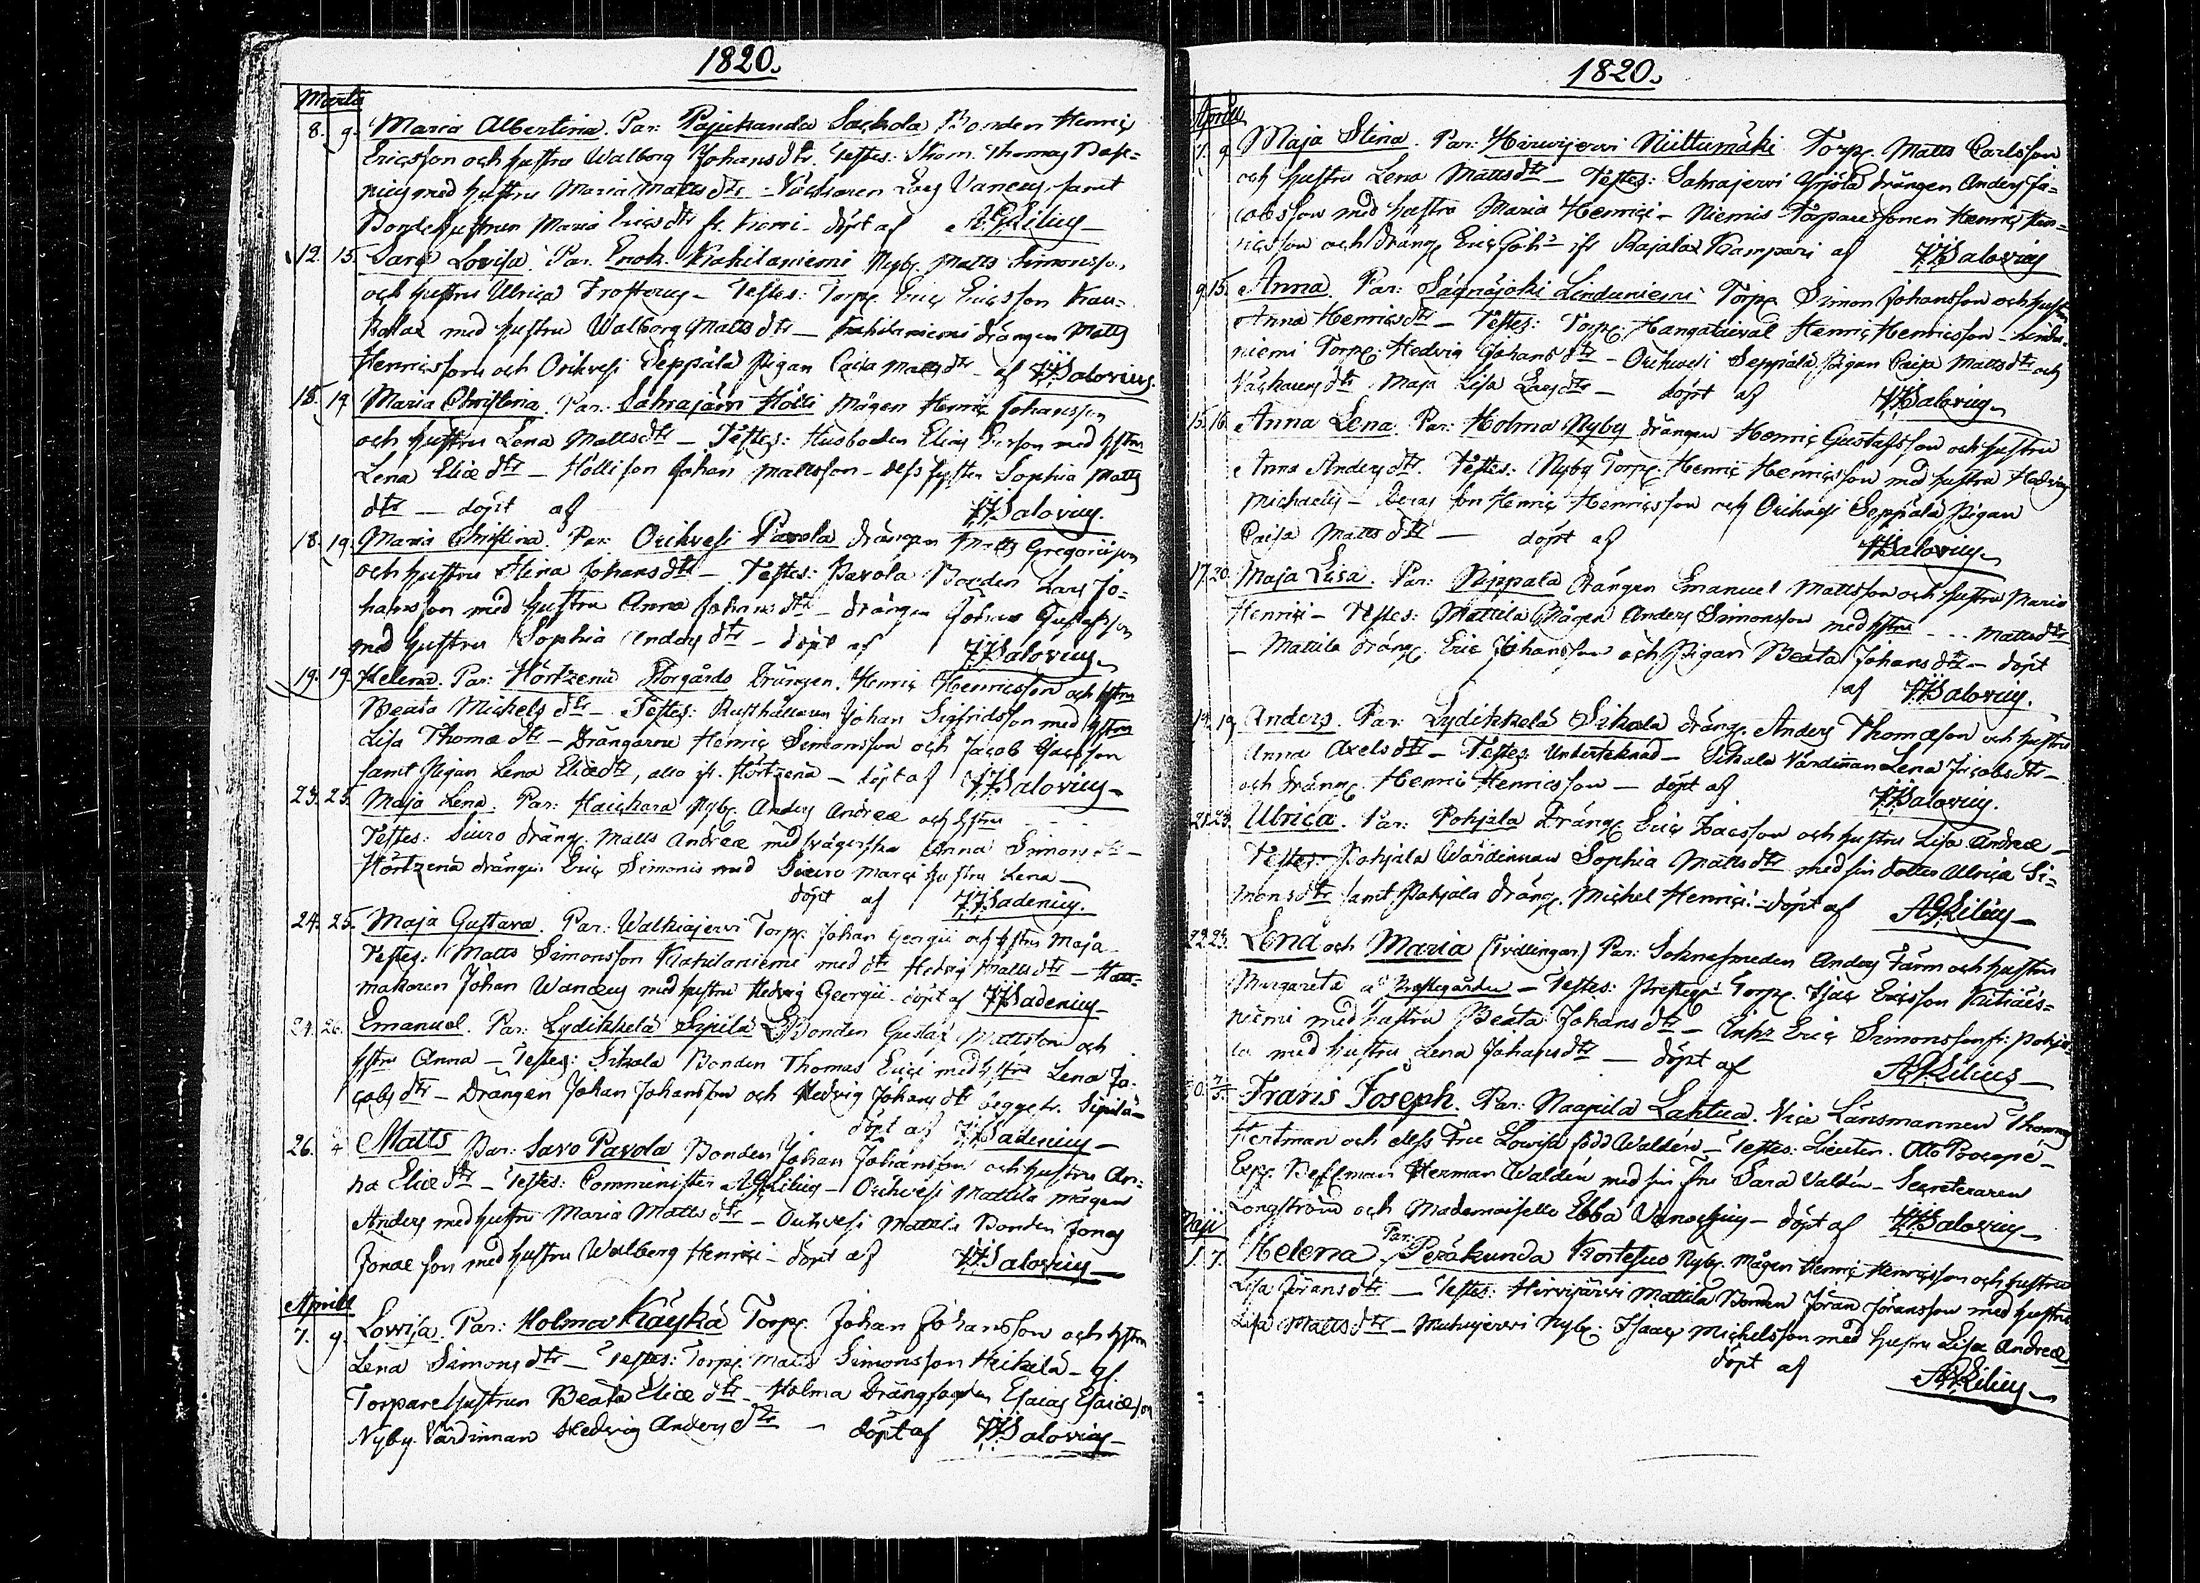 1820.
Martii
8. 9. Maria Albertina. Par: Pajukanda Sackola Bonden Henric
Ericsson och hustru Walborg Johans dtr. Testes: Skom. Thomas
med hustru Maria Matts dtr - Väfvaren Lars Vaneus samt
Bondehustrun Maria Erics dtr fr. Niemi - döpt af A. G. Kilius
12. 15. Sara Lovisa. Par. Enok. Kahilaniemi Nyby. Matts Simonsson
och hustru Ulrica Trofterus - Testes: Torp. Eric Ericsson
med hustru Walborg Matts dtr - Kahilaniemi drängen Matts
Henricsson och Orihvesi Seppälä Pigan Caisa Matts dtr - af Salovius.
18. 19. Maria Christina. Par: Sahrajärvi Hölli Mågen Henric Johansson
och hustru Lena Matts dtr - Testes: Husbonden Elias Ersson med hstru
Lena Eliæ dtr - Hölli son Johan Mattsson - dess syster Sophia Matts
dtr - döpt af Salovius.
18. 19. Maria Christina. Par: Orihvesi Pavola drängen Matts Gregorisson
och hustru Stina Johans dtr - Testes: Pavola Bonden Lars Jo=
hansson med hustru Anna Johans dtr - drängen Johan Gustafsson
med hustru Sophia Anders dtr - döpt af Salovius
19. 19. Helena. Par: Hörtzenä Storgårds Drängen Henric Henricsson och hstru
Beata Michels dtr - Testes: Rusthållaren Johan Sigfridsson med hstru
Lisa Thomæ dtr - Drängarne Henric Simonsson och Jacob
samt Pigan Lena Eliædtr, alla fr. Hörtzenä - döpt af Salovius
23. 25. Maja Lena. Par: Haickara Nyby. Anders Andreæ och hstru - - -
Testes: Siuro dräng. Matts Andreæ med svägerska Anna Simons dtr -
Hörtzenä drängen Eric Simonis med Siuro Marc hustru Lena -
döpt af Sadenius.
24. 25. Maja Gustava. Par: Walkiajervi Torp. Johan Georgii och hstru Maja
Testes: Matts Simonsson Kahilaniemi med dtr Hedvig Matts dtr - Hatt=
makaren Johan Wanæus med hustru Hedvig Georgii - döpt af Sadenius
24. 26. Emanuel. Par: Lydikkelä Sipilä Bonden Gustaf Mattsson och
hstru Anna - Testes: Sikala Bonden Thomas Erici med hstru Lena Ja=
cobs dtr - Drängen Johan Johansson och Hedvig Johans dtr bägge fr. Sipilä -
döpt af Sadenius -
26. Matts Par: Savo Pavola Bonden Johan Johansson och hustru An=
na Eliæ dtr - Testes: Comminister A G Kilius - Orihvesi Mattila mågen
Anders med hustru Maria Matts dtr - Orihvesi Mattila Bonden Jonas
Jonæ son med hustru Walborg Henrici - döpt af Salovius
Aprill
7. 9. Lovisa. Par: Holma Käyhä Torp. Johan Johansson och hstru
Lena Simons dtr - Testes: Torp. Matts Simonsson Heikilä -
Torparehustrun Beata Eliæ dtr - Holma Drängsonen Esaias Esaiæson
Nyby. Värdinnan Hedvig Anders dtr - döpt af Salovius
1820.
Aprill
7. 9. Maja Stina. Par: Hirvijervi Niittumäki Torp. Matts Carlsson
och hustru Lena Matts dtr - Testes: Sahrajervi Yrjölä drängen Anders Ja=
cobsson med hustru Maria Henrici - Niemis Torparesonen Henric Hen=
ricsson och dräng. Eric Joh:s ifr. Rajalax Kampari af Salovius
9. 15. Anna. Par: Sägnäjoki Linduniemi Torp. Simon Johansson och hustru
Anna Henrics dtr - Testes: Torp. Hangataival Henric Henricsson - Lindu=
niemi Torp. Hedvig Johans dtr - Orihvesi Seppälä Pigan Caisa Matts dtr och
dtr Maja Lisa Lars dtr - döpt af Salovius
15. 16. Anna Lena. Par: Holma Nyby drängen Henric Gustafsson och hustru
Anna Anders dtr. Testes: Nyby Torp. Henric Henricsson med hustru Hedvig
Michaelis - deras son Henric Henricsson och Orihvesi Seppälä Pigan
Caisa Matts dtr - döpt af Salovius
17. 20. Maja Lisa. Par: Pippala drängen Emanuel Mattsson och hustru Maria
Henrici - Testes: Mattila Mågen Anders Simonsson med hstru - - - Matts dtr
- Mattila dräng. Eric Johansson och Pigan Beata Johans dtr - döpt
af Salovius.
19. 19. Anders. Par: Lydikkelä Sikala dräng. Anders Thomæson och hustru
Anna Axels dtr - Testes: Undertecknad - Sikala Värdinnan Lena Jacobs dtr -
och dräng. Henric Henricsson - döpt af Salovius.
21. 23. Ulrica. Par: Pohjala Dräng. Eric Isacsson och hustru Lisa Andreæ -
Testes: Pohjala Wärdinnan Sophia Matts dtr med sin dotter Ulrica Si=
mons dtr samt Pohjala dräng. Michel Henrici - döpt af A G Kilius
22. 23. Lena och Maria (Tvillingar) Par: Soknesmeden Anders Färm och hustru
Margareta å Prestegården - Testes: Presteg: Torp. Isac Ericsson
niemi med hustru Beata Johans dtr - Eric Simonsson fr: Pohja
la med hustru Lena Johans dtr - döpt af A G Kilius
Frans Joseph. Par: Naapila Lahtua. Vice Länsmannen Thomas
Hertman och dess Fru Lowisa född Waldén - Testes: Lieuten. Otto Procopé -
Exp. Befl.man Herman Waldén med sin Fru Sara Valdén - Secreteraren
Longström och Mademoiselle Ebba - döpt af Salovius
Maji
1. 7. Helena Par: Peräkunda Kortesuo Nyby. Mågen Henric Henricsson och hustru
Lisa Jörans dtr - Testes: Hirvijärvi Mattila Bonden Jöran Jöransson med hustru
Lisa Matts dtr - Muhujervi Nyby. Isaac Michelsson med hustru Lisa Andreæ
döpt af A G Kilius